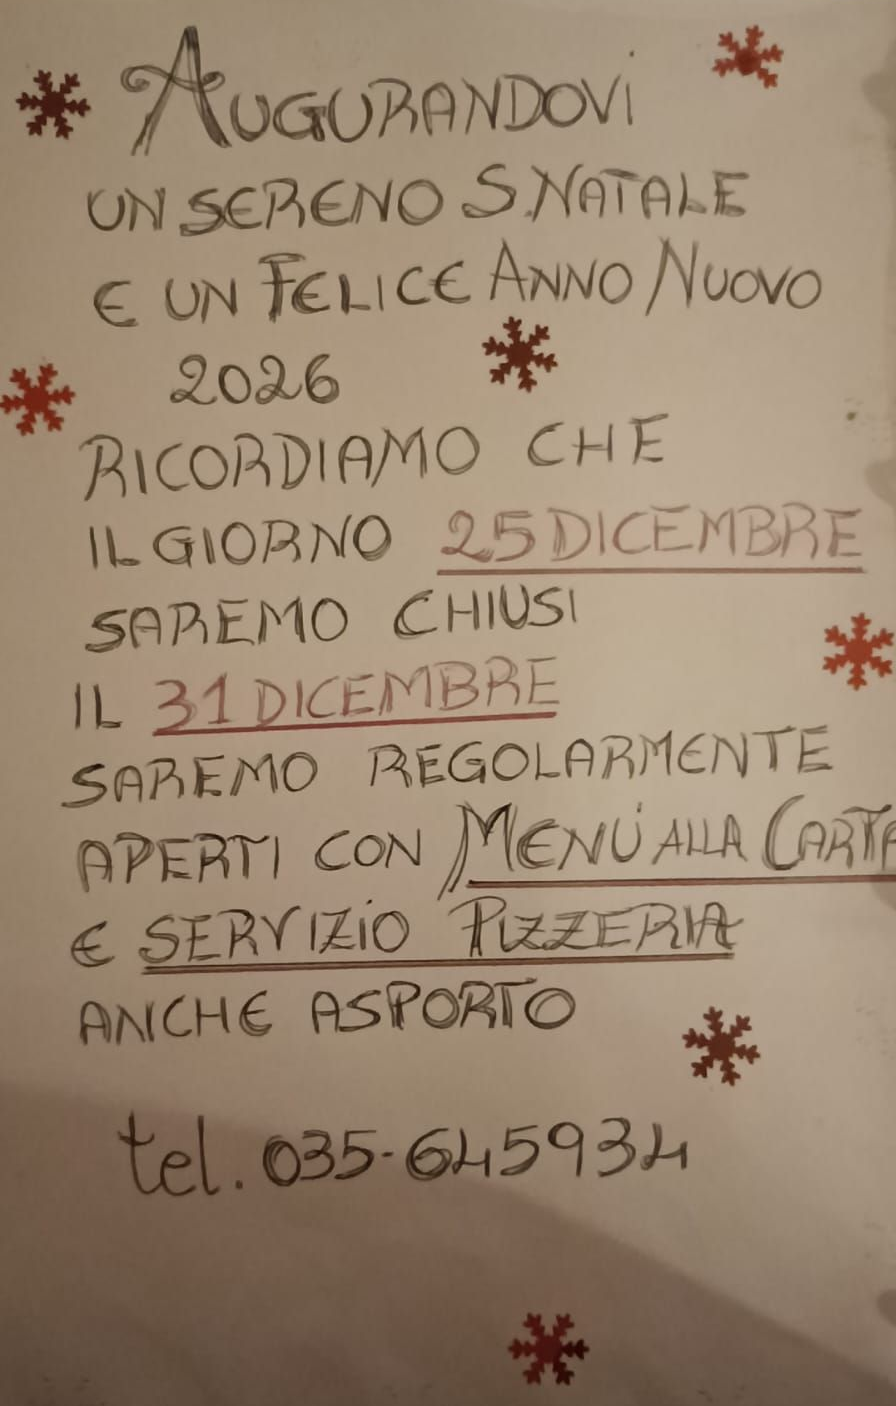 AUGURANDOVI
UN SERENO S. NATALE
E UN FELICE ANNO NUOVO
2026
RICORDIAMO CHE
IL GIORNO 25 DICEMBRE
SAREMO CHIUSI
IL 31 DICEMBRE
SAREMO REGOLARMENTE
APERTI CON MENÙ ALLA CARTA
E SERVIZIO PIZZERIA
ANCHE ASPORTO
tel. 035-645934